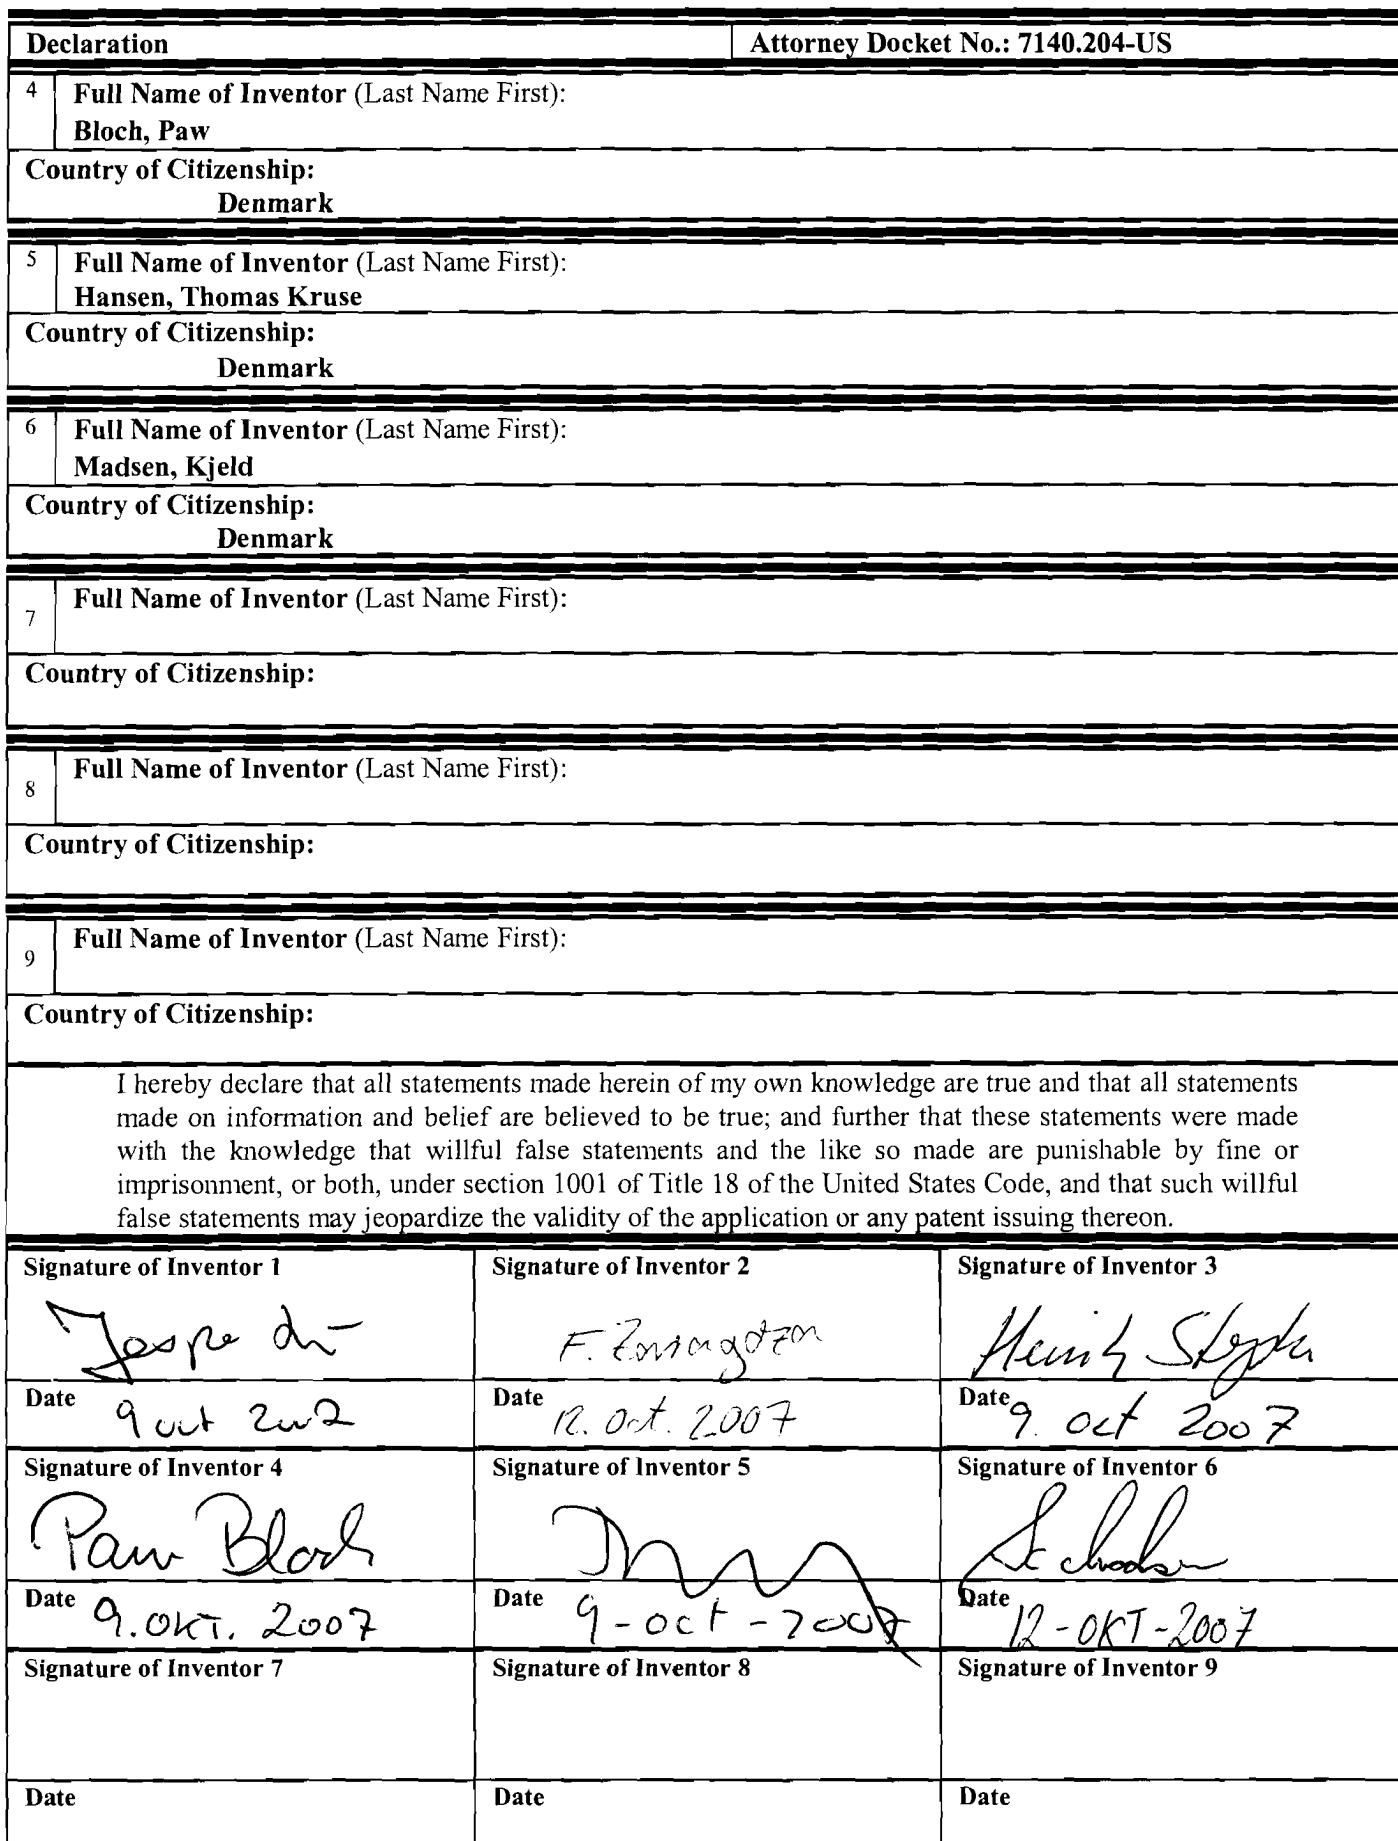 Declaration
Attorney Docket No.: 7140.204-US
4 Full Name of Inventor (Last Name First):
Bloch, Paw
Country of Citizenship:
Denmark
5 Full Name of Inventor (Last Name First):
Hansen, Thomas Kruse
Country of Citizenship:
Denmark
6 Full Name of Inventor (Last Name First):
Madsen, Kjeld
Country of Citizenship:
Denmark
7 Full Name of Inventor (Last Name First):
Country of Citizenship:
8 Full Name of Inventor (Last Name First):
Country of Citizenship:
9 Full Name of Inventor (Last Name First):
Country of Citizenship:
I hereby declare that all statements made herein of my own knowledge are true and that all statements
made on information and belief are believed to be true; and further that these statements were made
with the knowledge that willful false statements and the like so made are punishable by fine or
imprisonment, or both, under section 1001 of Title 18 of the United States Code, and that such willful
false statements may jeopardize the validity of the application or any patent issuing thereon.
Signature of Inventor 1
Signature of Inventor 2
Signature of Inventor 3
F.
Date 9 oct
Date 12. Oct. 2007
Date 9. oct 2007
Signature of Inventor 4
Signature of Inventor 5
Signature of Inventor 6
Paw Bloch
Date 9. OKT. 2007
Date 9-oct-2007
Date 12-OKT-2007
Signature of Inventor 7
Signature of Inventor 8
Signature of Inventor 9
Date
Date
Date